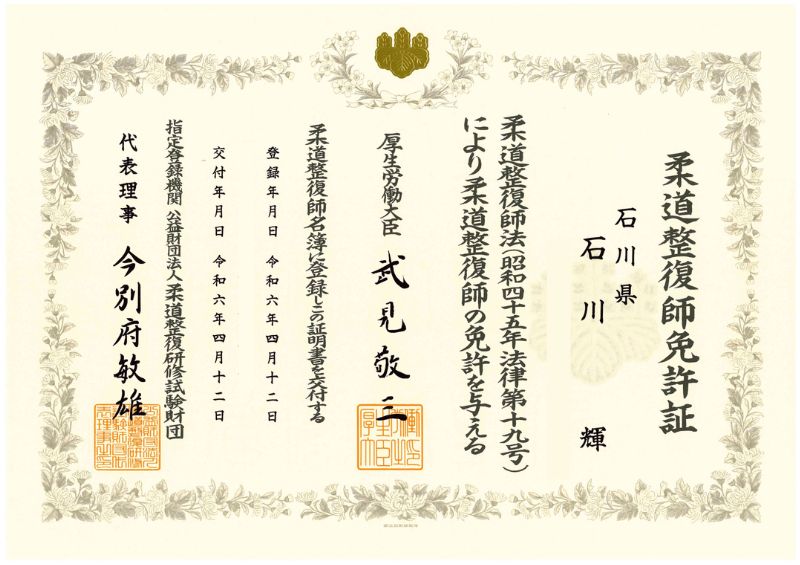 柔道整復師免許証
石川県
石川 輝
柔道整復師法(昭和四十五年法律第十九号)
により柔道整復師の免許を与える
厚生労働大臣 武見敬三
柔道整復師名簿に登録しこの証明書を交付する
登録年月日 令和六年四月十二日
交付年月日 令和六年四月十二日
指定登録機関 公益財団法人 柔道整復研修試験財団
代表理事 今別府敏雄